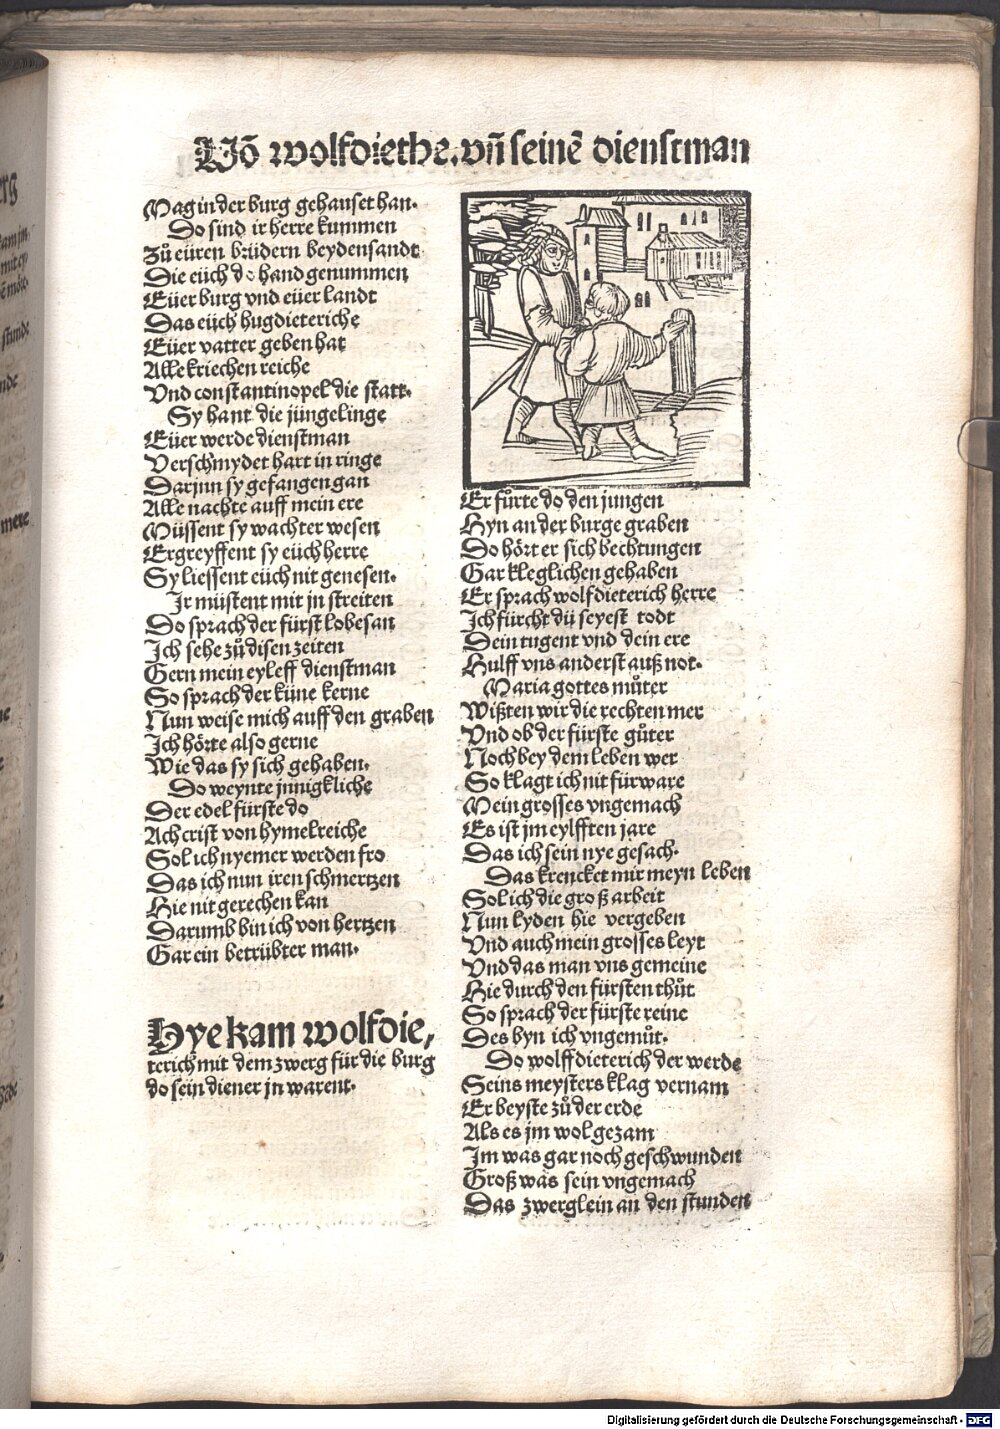 Võ wolfdiethe. vñ seinē dienstman
Mag in der burg gehauset han.
Do sind ir herre kummen
Zů eüren brüdern beydensandt
Die eüch do hand genummen
Eüer burg vnd eüer landt
Das eüch hugdieteriche
Eüer vatter geben hat
Alle kriechen reiche
Vnd constantinopel die statt.
Sy hant die jüngelinge
Eüer werde dienstman
Verschmydet hart in ringe
Darjnn sy gefangen gan
Alle nachte auff mein ere
Müssent sy wachter wesen
Ergreyffent sy eüch herre
Sy liessent eüch nit genesen.
Ir müstent mit jn streiten
Do sprach der fürst lobesan
Ich sehe zů disen zeiten
Gern mein eyleff dienstman
So sprach der küne kerne
Nun weise mich auff den graben
Ich hörte also gerne
Wie das sy sich gehaben.
Do weynte jnnigkliche
Der edel fürste do
Ach crist von hymelreiche
Sol ich nyemer werden fro
Das ich nun iren schmertzen
Hie nit gerechen kan
Darumb bin ich von hertzen
Gar ein betrübter man.
Hye kam wolfdie,
terich mit dem zwerg für die burg
do sein diener jn warent.
Er fůrte do den jungen
Hyn an der burge graben
Do hört er sich bechtungen
Gar kleglichen gehaben
Er sprach wolfdieterich herre
Ich fürcht dü seyest todt
Dein tugent vnd dein ere
Hulff vns anderst auß not.
Maria gottes můter
Wißten wir die rechten mer
Vnd ob der fürste gůter
Noch bey dem leben wer
So klagt ich nit fürware
Mein grosses vngemach
Es ist jm eylfften jare
Das ich sein nye gesach.
Das krencket mir meyn leben
Sol ich die groß arbeit
Nun lyden hie vergeben
Vnd auch mein grosses leyt
Vnd das man vns gemeine
Hie durch den fürsten thůt
So sprach der fürste reine
Des byn ich vngemůt.
Do wolffdieterich der werde
Seins meysters klag vernam
Er beyste zů der erde
Als es jm wol gezam
Im was gar noch geschwunden
Groß was sein vngemach
Das zwerglein an den stunden
Digitalisierung gefördert durch die Deutsche Forschungsgemeinschaft - DFG